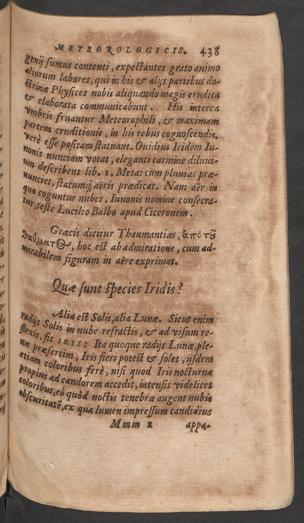 METEOROLOGICIS. 438
genij sumus contenti, expectantes grato animo
aliorum labores, qui in his & alijs partibus do-
ctrinæ Physices nobis aliquando magis erudita
& elaborata communicabunt. His interea
umbris fruantur Meteorophili, & maximam
partem eruditionis, in his rebus cognoscendis,
verè esse positam statuant. Ouidius Iridem Iu-
nonis nunciam vocat, eleganti carmine diluui-
um describens lib. 1. Meta: cum pluuias præ-
nunciet, statumq; aëris prædicat. Nam aër in
que coguntur nubes, Iunonis nomine consecra-
tur, teste Lucilio Balbo apud Ciceronem.
Græcis dicitur Thaumantias, ἀπὸ τοῦ
θαύματος, hoc est ab admiratione, cum ad-
mirabilem figuram in aëre exprimat.
Quæ sunt species Iridis?
Alia est Solis, alia Lunæ. Sicut enim
radijs Solis in nube refractis, & ad visum re-
flexis, fit IRIS: Ita quoque radijs Lunæ ple-
næ præsertim, Iris fieri potest & solet, ijsdem
etiam coloribus ferè, nisi quod Iris nocturna
propius ad candorem accedit, intensis videlicet
coloribus, eò quòd noctis tenebræ augent nubis
obscuritatē, ex qua lumen impressum candidius
Mmm 2 appa-